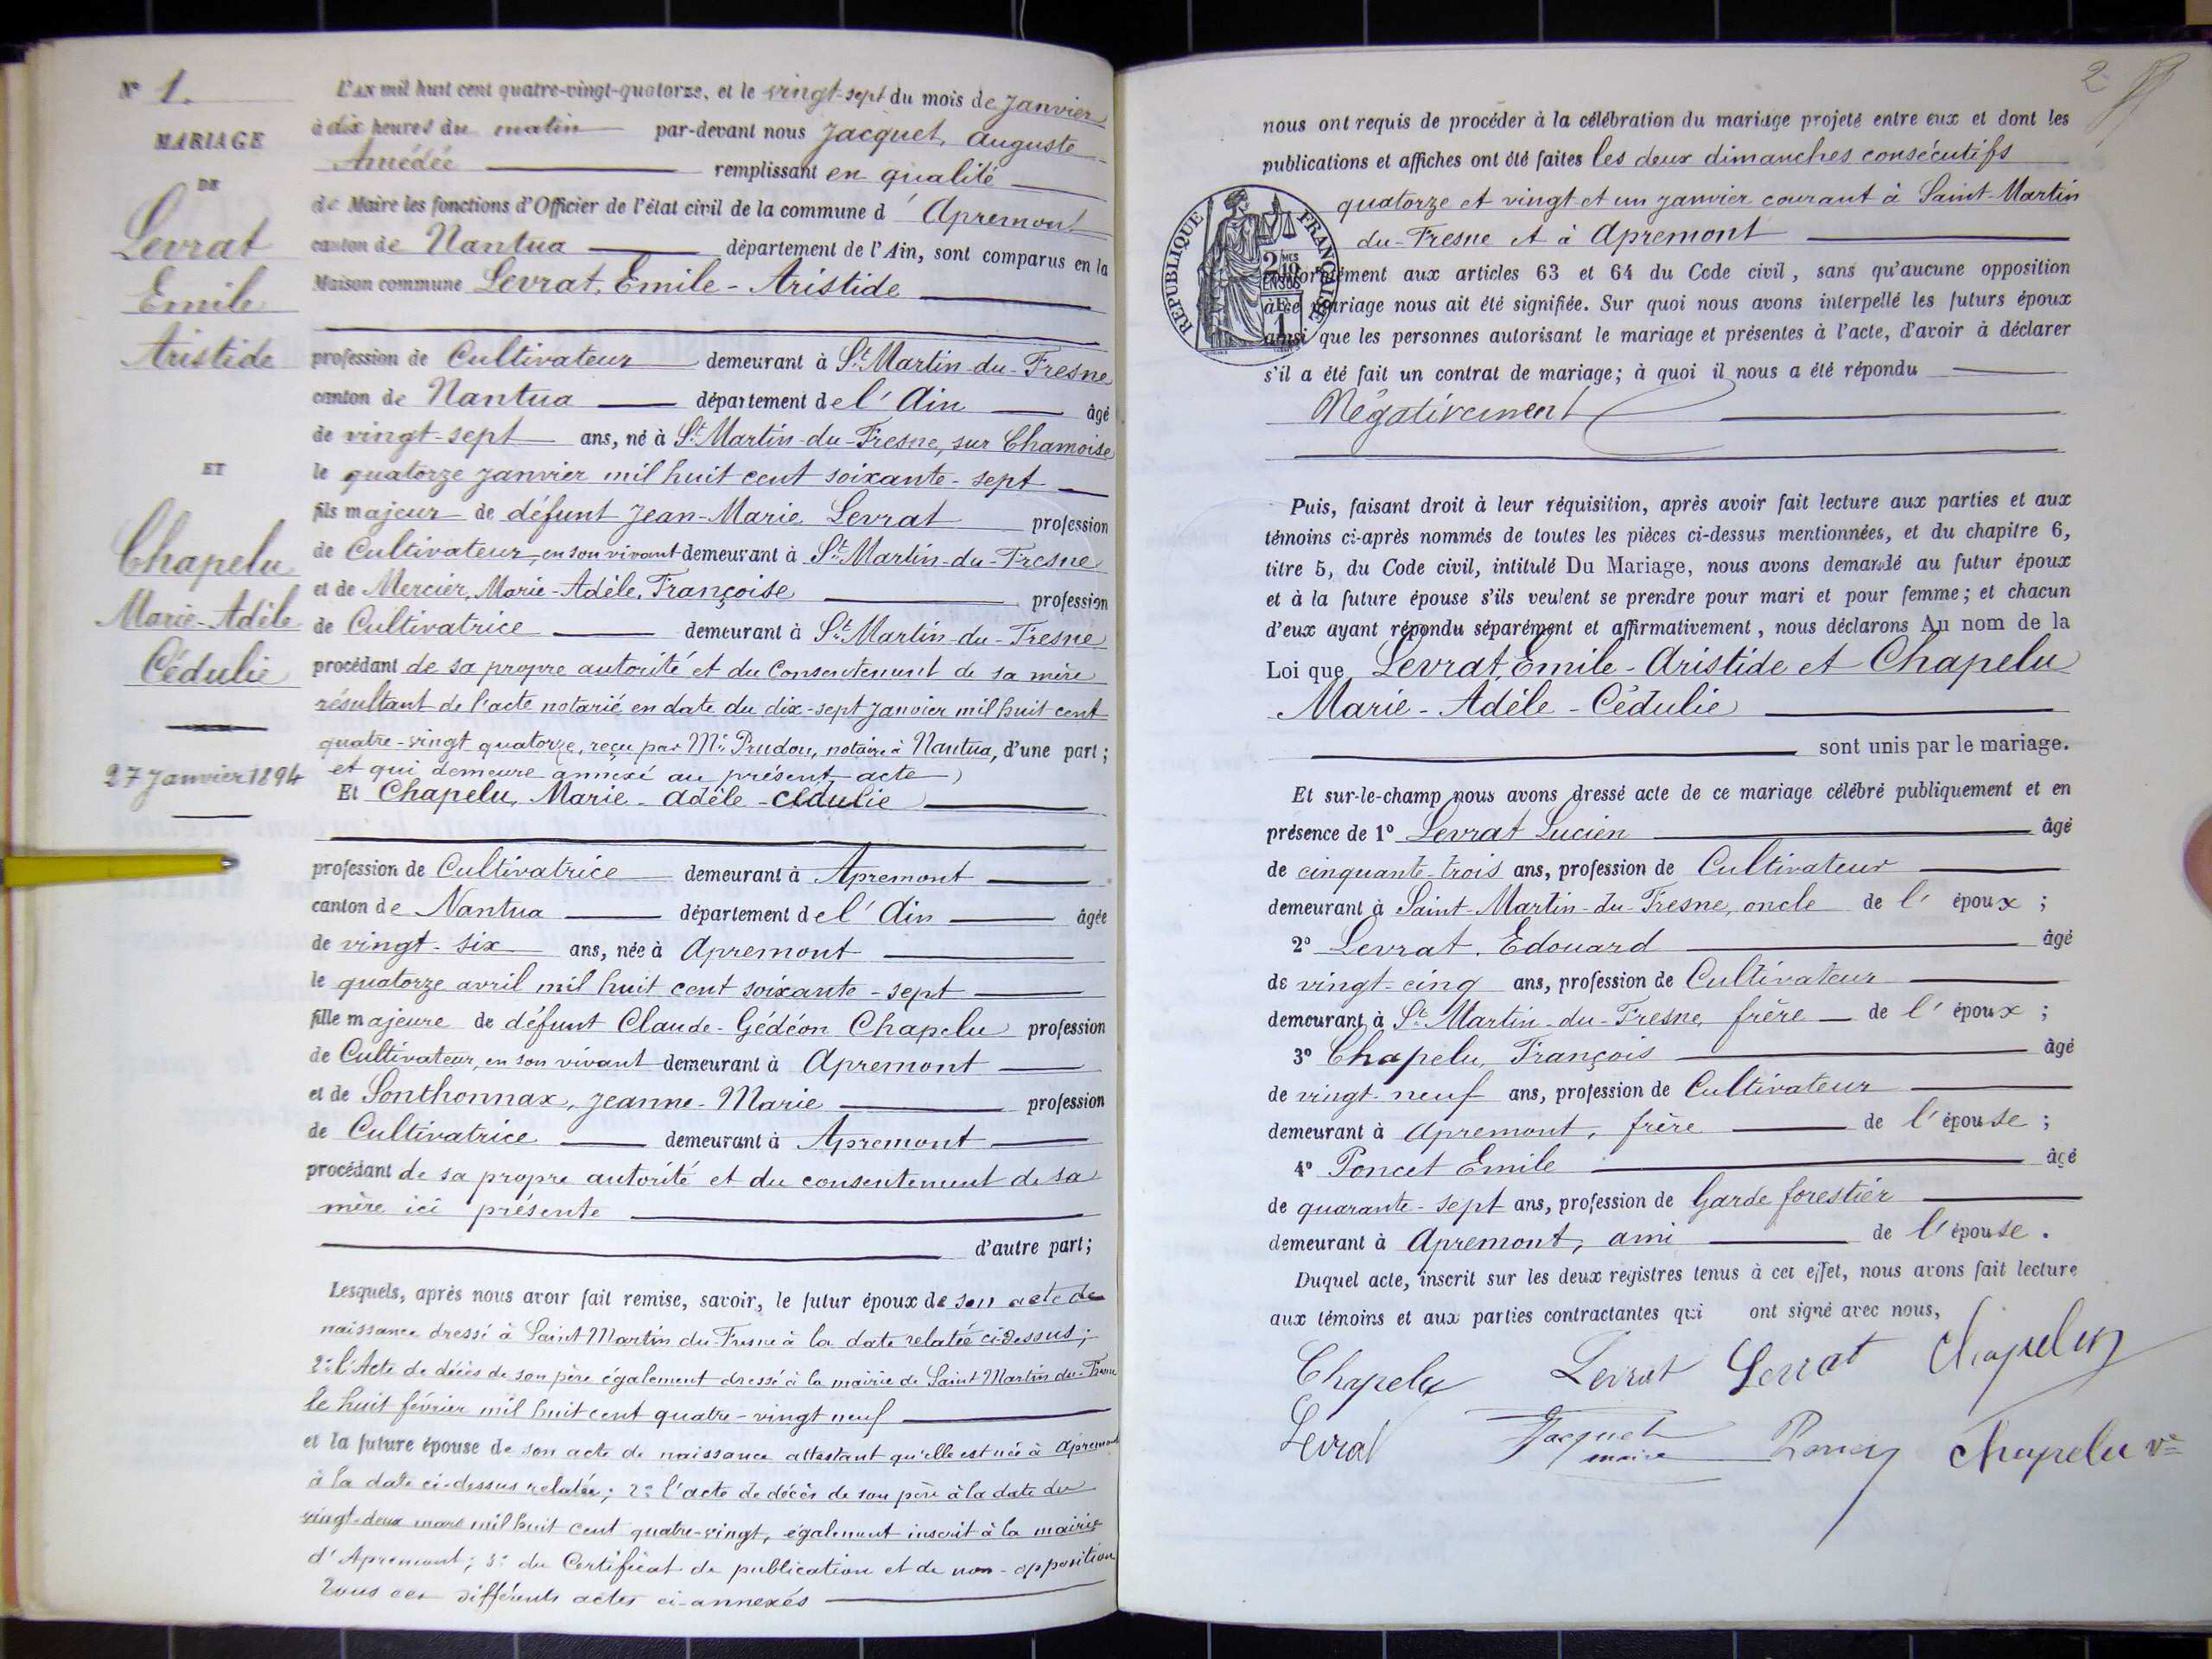 N° 1.
MARIAGE
DE
Levrat
Emile
Aristide
ET
Chapelu
Marie-Adèle
Cédulie
27 Janvier 1894
L'AN mil huit cent quatre-vingt-quatorze, et le vingt-sept du mois de Janvier
à dix heures du matin par-devant nous Jacquet, Auguste
Amédée remplissant en qualité
de Maire les fonctions d'Officier de l'état civil de la commune d'Apremont
canton de Nantua département de l'Ain, sont comparus en la
Maison commune Levrat, Emile-Aristide
profession de Cultivateur demeurant à St Martin-du-Fresne
canton de Nantua département de l'Ain âgé
de vingt-sept ans, né à St Martin-du-Fresne, sur Chamoise
le quatorze janvier mil huit cent soixante-sept
fils majeur de défunt Jean-Marie Levrat profession
de Cultivateur, en son vivant demeurant à St Martin-du-Fresne
et de Mercier, Marie-Adèle, Françoise profession
de Cultivatrice demeurant à St Martin-du-Fresne
procédant de sa propre autorité et du Consentement de sa mère
résultant de l'acte notarié en date du dix-sept Janvier mil huit cent
quatre-vingt quatorze, reçu par Me Prudon, notaire à Nantua, d'une part;
et qui demeure annexé au présent acte
Et Chapelu, Marie-Adèle-Cédulie
profession de Cultivatrice demeurant à Apremont
canton de Nantua département de l'Ain âgée
de vingt-six ans, née à Apremont
le quatorze avril mil huit cent soixante-sept
fille majeure de défunt Claude-Gédéon Chapelu profession
de Cultivateur, en son vivant demeurant à Apremont
et de Sonthonnax, Jeanne-Marie profession
de Cultivatrice demeurant à Apremont
procédant de sa propre autorité et du consentement de sa
mère ici présente
d'autre part;
Lesquels, après nous avoir fait remise, savoir, le futur époux de son acte de
naissance dressé à Saint Martin du-Fresne à la date relatée ci-dessus;
2° l'Acte de décès de son père également dressé à la mairie de Saint Martin du-Fresne
le huit février mil huit cent quatre-vingt neuf
et la future épouse de son acte de naissance attestant qu'elle est née à Apremont
à la date ci-dessus relatée; 2° l'acte de décès de son père à la date du
vingt-deux mars mil huit cent quatre-vingt, également inscrit à la mairie
d'Apremont; 3° du Certificat de publication et de non-opposition
Tous ces différents actes ci-annexés
2
nous ont requis de procéder à la célébration du mariage projeté entre eux et dont les
publications et affiches ont été faites les deux dimanches consécutifs
quatorze et vingt et un janvier courant à Saint-Martin
du-Fresne et à Apremont
RÉPUBLIQUE FRANÇAISE
conformément aux articles 63 et 64 du Code civil, sans qu'aucune opposition
à ce mariage nous ait été signifiée. Sur quoi nous avons interpellé les futurs époux
ainsi que les personnes autorisant le mariage et présentes à l'acte, d'avoir à déclarer
s'il a été fait un contrat de mariage; à quoi il nous a été répondu
Négativement
Puis, faisant droit à leur réquisition, après avoir fait lecture aux parties et aux
témoins ci-après nommés de toutes les pièces ci-dessus mentionnées, et du chapitre 6,
titre 5, du Code civil, intitulé Du Mariage, nous avons demandé au futur époux
et à la future épouse s'ils veulent se prendre pour mari et pour femme; et chacun
d'eux ayant répondu séparément et affirmativement, nous déclarons Au nom de la
Loi que Levrat, Emile-Aristide et Chapelu
Marie-Adèle-Cédulie
sont unis par le mariage.
Et sur-le-champ nous avons dressé acte de ce mariage célébré publiquement et en
présence de 1° Levrat Lucien âgé
de cinquante-trois ans, profession de Cultivateur
demeurant à Saint-Martin-du-Fresne, oncle de l'époux;
2° Levrat, Edouard âgé
de vingt-cinq ans, profession de Cultivateur
demeurant à St Martin-du-Fresne, frère de l'époux;
3° Chapelu, François âgé
de vingt-neuf ans, profession de Cultivateur
demeurant à Apremont, frère de l'épouse;
4° Poncet Emile âgé
de quarante-sept ans, profession de Garde forestier
demeurant à Apremont, ami de l'épouse.
Duquel acte, inscrit sur les deux registres tenus à cet effet, nous avons fait lecture
aux témoins et aux parties contractantes qui ont signé avec nous,
Chapelu Levrat Levrat Chapelu
Levrat Jacquet Chapelu Ve
maire